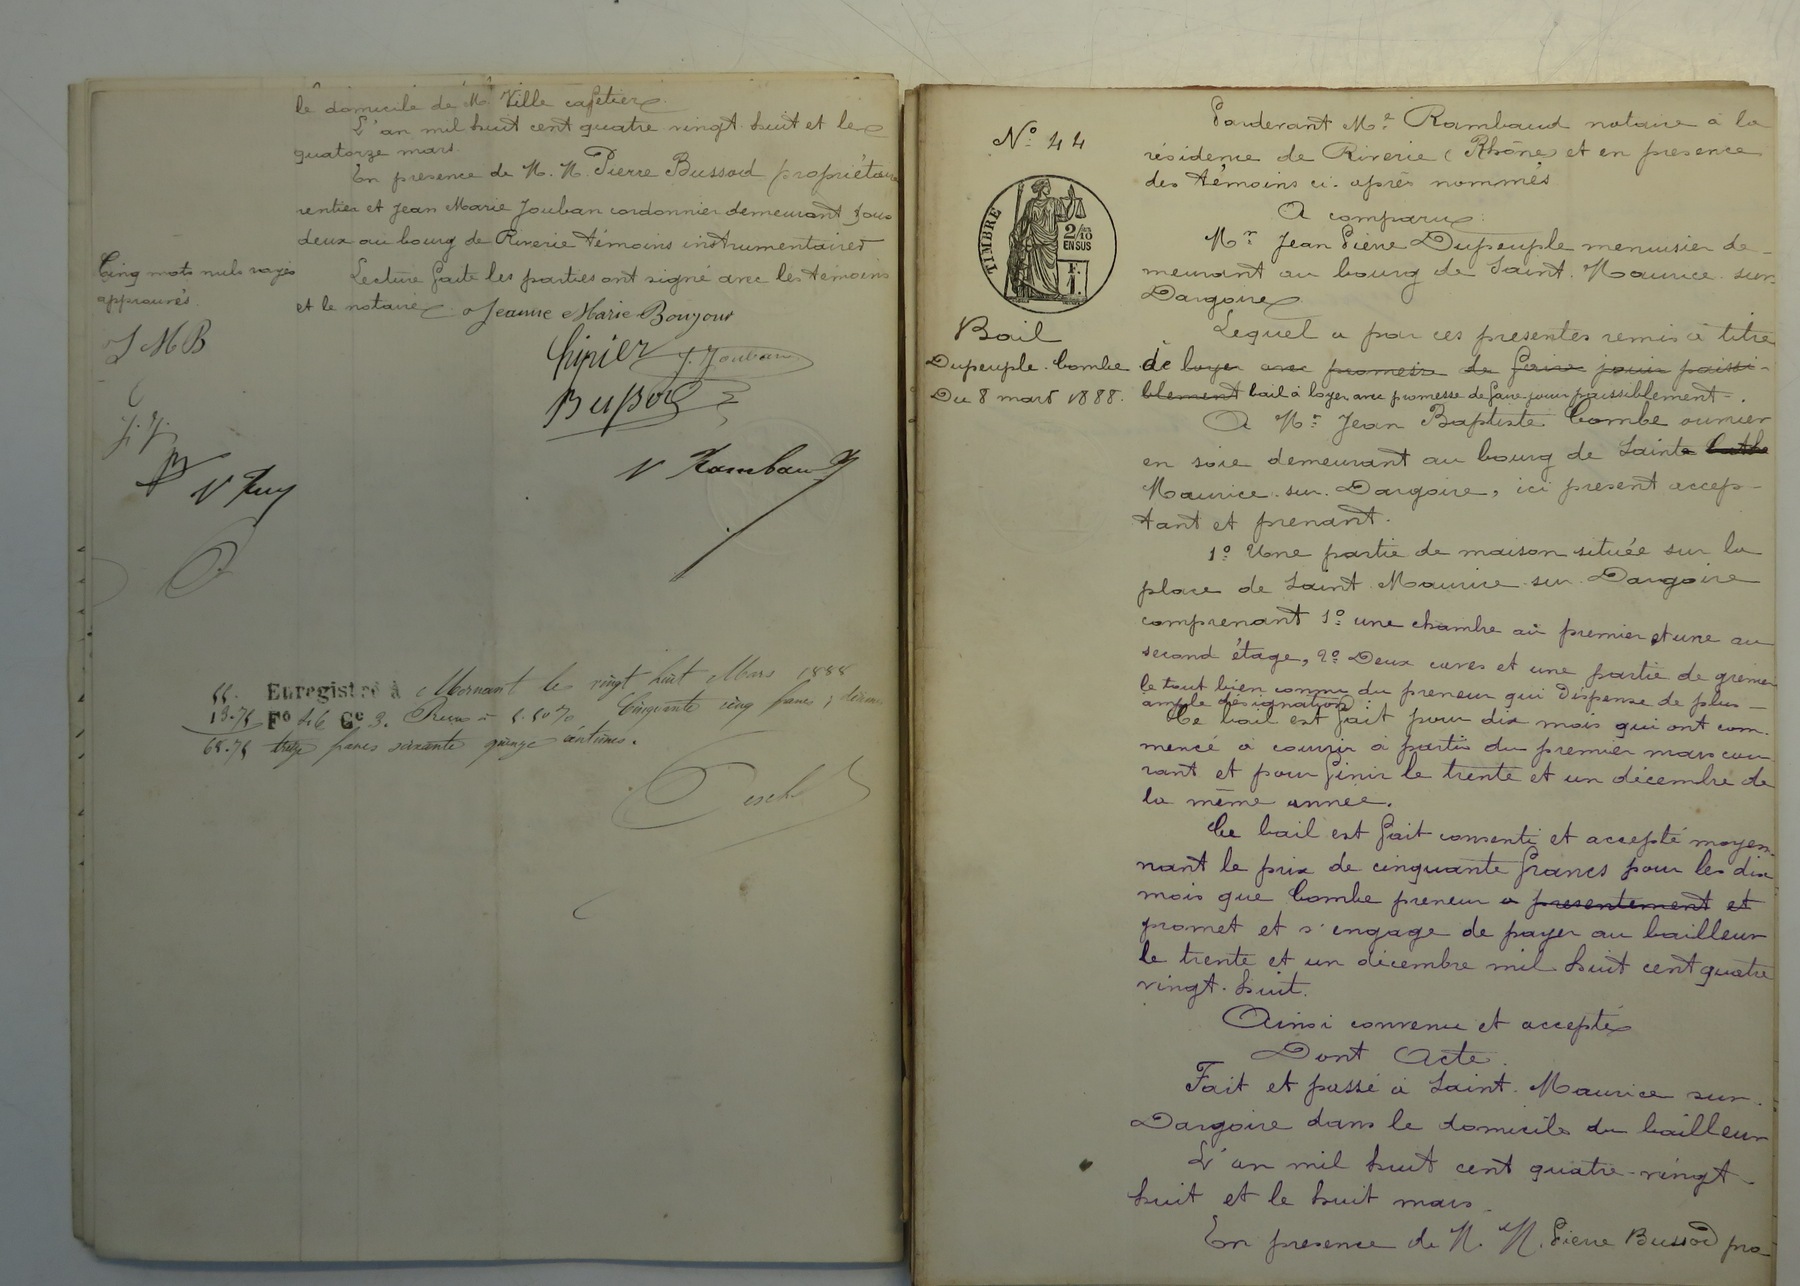 le domicile de Mr Ville cafetier
L'an mil huit cent quatre vingt huit et le
quatorze mars.
En presence de M. M. Pierre Bussod propriétaire
rentier et Jean Marie Jouban cordonnier demeurant tous
deux au bourg de Riverie témoins instrumentaires
Lecture faite les parties ont signé avec les témoins
et le notaire Jeanne Marie Bonjour
Cinq mots nuls rayés
approuvés.
J M B
J. J.
J. Jouban
Bussod
V Rambaud
55.
13.75
68.75
Enregistré à Mornant le vingt huit Mars 1888
Fo 46 Ce 3. Reçu à 5.50% Cinquante cinq francs ; décimes
treize francs soixante quinze centimes.
No 44
TIMBRE
2/10
EN SUS
F.
1.
Bail
Dupeuple. Combe
Du 8 mars 1888.
Pardevant Me Rambaud notaire à la
résidence de Riverie (Rhône) et en presence
des témoins ci-après nommés
A comparu
Mr Jean Pierre Dupeuple menuisier de-
meurant au bourg de Saint-Maurice-sur-
Dargoire
Lequel a par ces presentes remis à titre
de loyer avec promesse de faire jouir paisi-
blement bail à loyer avec promesse de faire jouir paissiblement.
A Mr Jean Baptiste Combe ouvrier
en soie demeurant au bourg de Sainte Cathe
Maurice-sur-Dargoire, ici present accep-
tant et prenant.
1o Une partie de maison située sur la
place de Saint-Maurice-sur-Dargoire
comprenant 1o une chambre au premier et une au
second étage, 2o Deux caves et une partie de grenier
le tout bien connu du preneur qui dispense de plus
ample désignation
Ce bail est fait pour dix mois qui ont com-
mencé à courir à partir du premier mars cou-
rant et pour finir le trente et un décembre de
la même année.
Ce bail est fait consenti et accepté moyen-
nant le prix de cinquante francs pour les dix
mois que Combe preneur a presentement et
promet et s'engage de payer au bailleur
le trente et un décembre mil huit cent quatre
vingt-huit.
Ainsi convenu et accepté
Dont Acte.
Fait et passé à Saint-Maurice-sur-
Dargoire dans le domicile du bailleur
L'an mil huit cent quatre-vingt-
huit et le huit mars
En presence de M. M. Pierre Bussod pro-